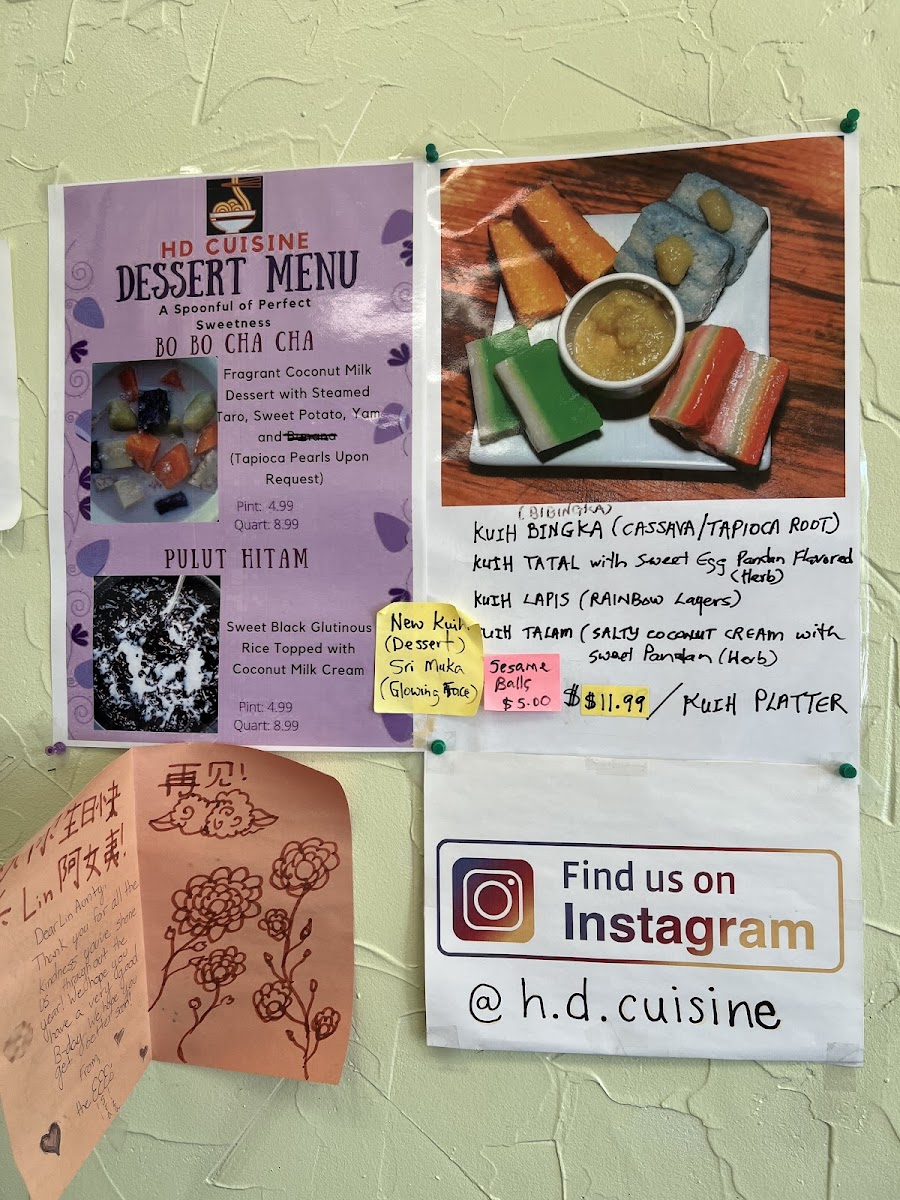 HD CUISINE
DESSERT MENU
A Spoonful of Perfect
Sweetness
BO BO CHA CHA
Fragrant Coconut Milk
Dessert with Steamed
Taro, Sweet Potato, Yam
and Banana
(Tapioca Pearls Upon
Request)
Pint: 4.99
Quart: 8.99
PULUT HITAM
Sweet Black Glutinous
Rice Topped with
Coconut Milk Cream
Pint: 4.99
Quart: 8.99
(BIBINGKA)
KUIH BINGKA (CASSAVA/TAPIOCA ROOT)
KUIH TATAL with Sweet Egg Pandan Flavored
(Herb)
KUIH LAPIS (RAINBOW Layers)
KUIH TALAM (SALTY COCONUT CREAM with
Sweet Pandan (Herb)
$ $11.99 / KUIH PLATTER
New Kuih
(Dessert)
Sri Muka
(Glowing Face)
Sesame
Balls
$5.00
再见!
生日快
Lin 阿姨!
Dear Lin Aunty,
Thank you for all the
kindness you've shone
us throughout the
year! We hope you
have a very good
B-day we hope you
get better soon!
From,
the
Find us on
Instagram
@h.d.cuisine